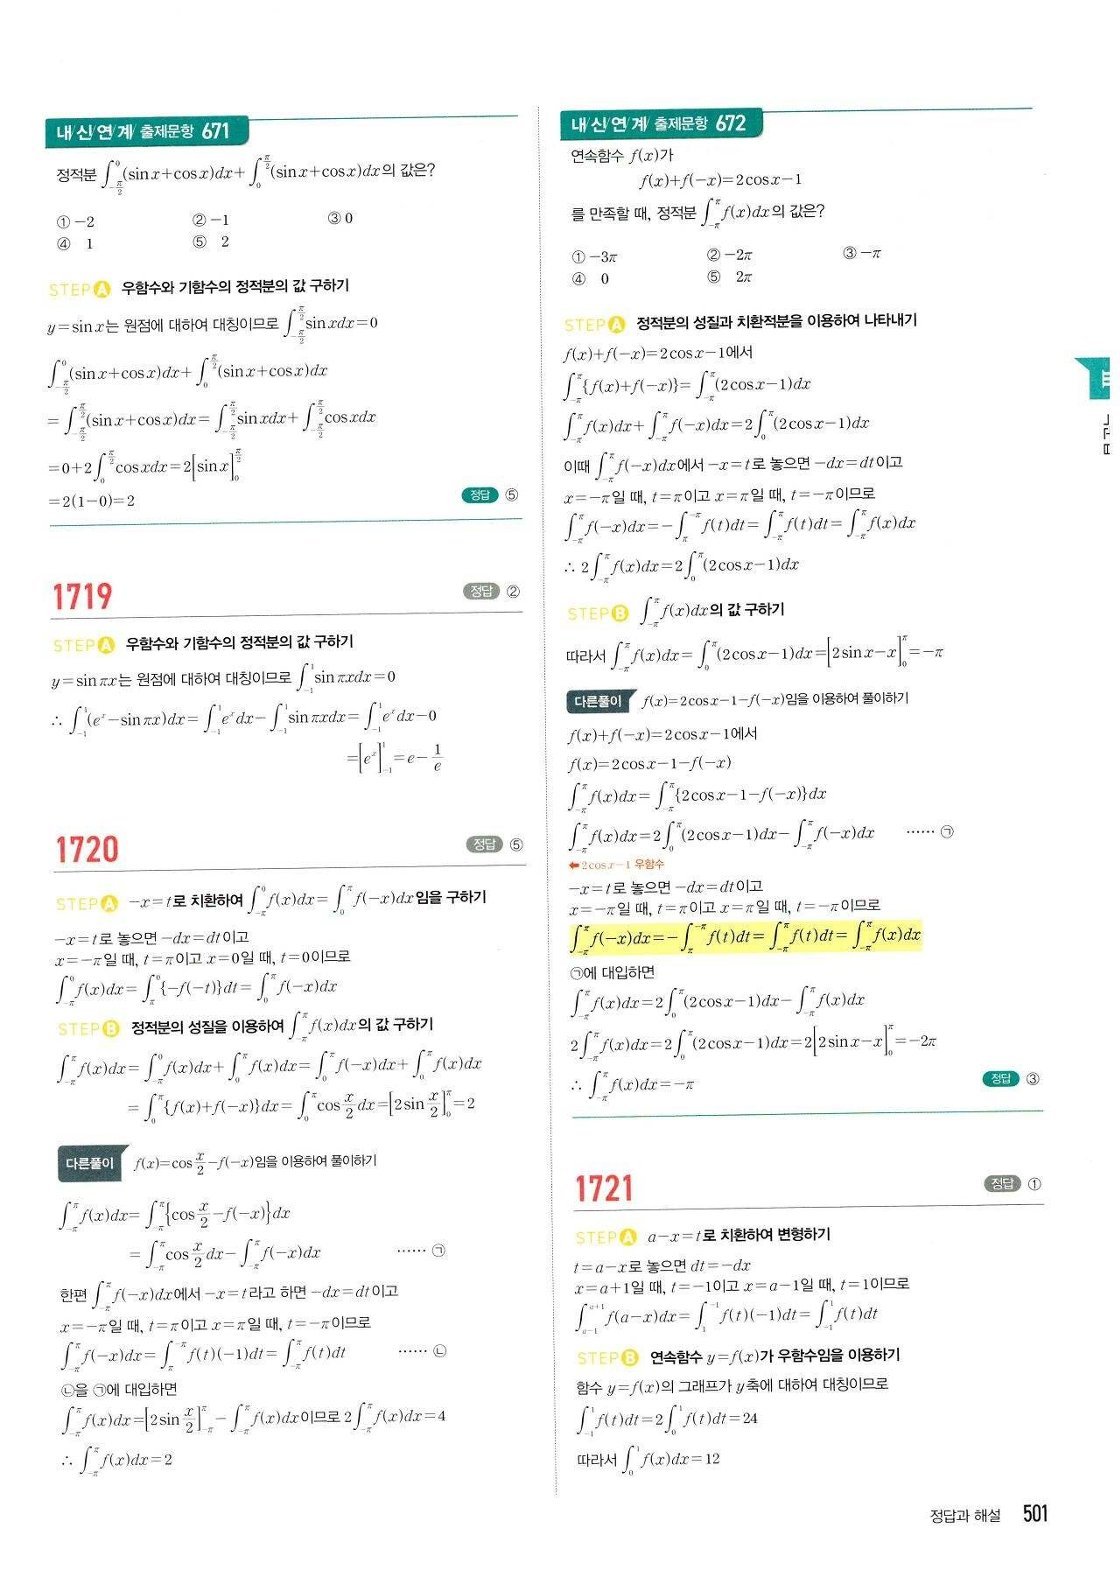 내신연계 출제문항 671
정적분 ∫_{-π/2}^{0}(sin x+cos x)dx+∫_{0}^{π/2}(sin x+cos x)dx의 값은?
① -2 ② -1 ③ 0
④ 1 ⑤ 2
STEP A 우함수와 기함수의 정적분의 값 구하기
y=sin x는 원점에 대하여 대칭이므로 ∫_{-π/2}^{π/2} sin xdx=0
∫_{-π/2}^{0}(sin x+cos x)dx+∫_{0}^{π/2}(sin x+cos x)dx
=∫_{-π/2}^{π/2}(sin x+cos x)dx=∫_{-π/2}^{π/2} sin xdx+∫_{-π/2}^{π/2} cos xdx
=0+2∫_{0}^{π/2} cos xdx=2[sin x]_{0}^{π/2}
=2(1-0)=2 정답 ⑤
1719 정답 ②
STEP A 우함수와 기함수의 정적분의 값 구하기
y=sin πx는 원점에 대하여 대칭이므로 ∫_{-1}^{1} sin πxdx=0
∴ ∫_{-1}^{1}(e^x-sin πx)dx=∫_{-1}^{1} e^x dx-∫_{-1}^{1} sin πxdx=∫_{-1}^{1} e^x dx-0
=[e^x]_{-1}^{1}=e-1/e
1720 정답 ⑤
STEP A -x=t로 치환하여 ∫_{-π}^{0} f(x)dx=∫_{0}^{π} f(-x)dx임을 구하기
-x=t로 놓으면 -dx=dt이고
x=-π일 때, t=π이고 x=0일 때, t=0이므로
∫_{-π}^{0} f(x)dx=∫_{π}^{0}{-f(-t)}dt=∫_{0}^{π} f(-x)dx
STEP B 정적분의 성질을 이용하여 ∫_{-π}^{π} f(x)dx의 값 구하기
∫_{-π}^{π} f(x)dx=∫_{-π}^{0} f(x)dx+∫_{0}^{π} f(x)dx=∫_{0}^{π} f(-x)dx+∫_{0}^{π} f(x)dx
=∫_{0}^{π}{f(x)+f(-x)}dx=∫_{0}^{π} cos x/2 dx=[2sin x/2]_{0}^{π}=2
다른풀이 f(x)=cos x/2-f(-x)임을 이용하여 풀이하기
∫_{-π}^{π} f(x)dx=∫_{-π}^{π}{cos x/2-f(-x)}dx
=∫_{-π}^{π} cos x/2 dx-∫_{-π}^{π} f(-x)dx …… ㉠
한편 ∫_{-π}^{π} f(-x)dx에서 -x=t라고 하면 -dx=dt이고
x=-π일 때, t=π이고 x=π일 때, t=-π이므로
∫_{-π}^{π} f(-x)dx=∫_{π}^{-π} f(t)(-1)dt=∫_{-π}^{π} f(t)dt …… ㉡
㉡을 ㉠에 대입하면
∫_{-π}^{π} f(x)dx=[2sin x/2]_{-π}^{π}-∫_{-π}^{π} f(x)dx이므로 2∫_{-π}^{π} f(x)dx=4
∴ ∫_{-π}^{π} f(x)dx=2
내신연계 출제문항 672
연속함수 f(x)가
f(x)+f(-x)=2cos x-1
를 만족할 때, 정적분 ∫_{-π}^{π} f(x)dx의 값은?
① -3π ② -2π ③ -π
④ 0 ⑤ 2π
STEP A 정적분의 성질과 치환적분을 이용하여 나타내기
f(x)+f(-x)=2cos x-1에서
∫_{-π}^{π}{f(x)+f(-x)}=∫_{-π}^{π}(2cos x-1)dx
∫_{-π}^{π} f(x)dx+∫_{-π}^{π} f(-x)dx=2∫_{0}^{π}(2cos x-1)dx
이때 ∫_{-π}^{π} f(-x)dx에서 -x=t로 놓으면 -dx=dt이고
x=-π일 때, t=π이고 x=π일 때, t=-π이므로
∫_{-π}^{π} f(-x)dx=-∫_{π}^{-π} f(t)dt=∫_{-π}^{π} f(t)dt=∫_{-π}^{π} f(x)dx
∴ 2∫_{-π}^{π} f(x)dx=2∫_{0}^{π}(2cos x-1)dx
STEP B ∫_{-π}^{π} f(x)dx의 값 구하기
따라서 ∫_{-π}^{π} f(x)dx=∫_{0}^{π}(2cos x-1)dx=[2sin x-x]_{0}^{π}=-π
다른풀이 f(x)=2cos x-1-f(-x)임을 이용하여 풀이하기
f(x)+f(-x)=2cos x-1에서
f(x)=2cos x-1-f(-x)
∫_{-π}^{π} f(x)dx=∫_{-π}^{π}{2cos x-1-f(-x)}dx
∫_{-π}^{π} f(x)dx=2∫_{0}^{π}(2cos x-1)dx-∫_{-π}^{π} f(-x)dx …… ㉠
← 2cos x-1 우함수
-x=t로 놓으면 -dx=dt이고
x=-π일 때, t=π이고 x=π일 때, t=-π이므로
∫_{-π}^{π} f(-x)dx=-∫_{π}^{-π} f(t)dt=∫_{-π}^{π} f(t)dt=∫_{-π}^{π} f(x)dx
㉠에 대입하면
∫_{-π}^{π} f(x)dx=2∫_{0}^{π}(2cos x-1)dx-∫_{-π}^{π} f(x)dx
2∫_{-π}^{π} f(x)dx=2∫_{0}^{π}(2cos x-1)dx=2[2sin x-x]_{0}^{π}=-2π
∴ ∫_{-π}^{π} f(x)dx=-π 정답 ③
1721 정답 ①
STEP A a-x=t로 치환하여 변형하기
t=a-x로 놓으면 dt=-dx
x=a+1일 때, t=-1이고 x=a-1일 때, t=1이므로
∫_{a-1}^{a+1} f(a-x)dx=∫_{1}^{-1} f(t)(-1)dt=∫_{-1}^{1} f(t)dt
STEP B 연속함수 y=f(x)가 우함수임을 이용하기
함수 y=f(x)의 그래프가 y축에 대하여 대칭이므로
∫_{-1}^{1} f(t)dt=2∫_{0}^{1} f(t)dt=24
따라서 ∫_{0}^{1} f(x)dx=12
정답과 해설 501